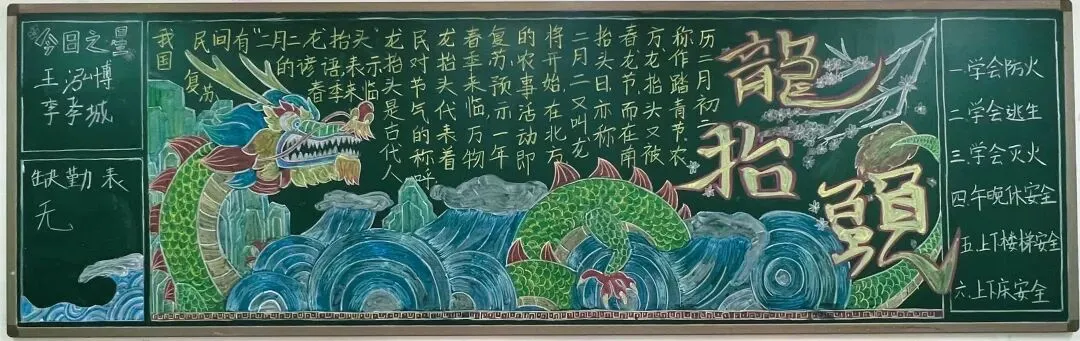 今日之星
王泓博
李孝城
缺勤表
无
我国
民间有"二月二龙抬头
的谚语表示
季来临
复苏
龙抬头是古代人
民对节气的称呼
龙抬头代表着
春季来临,万物
复苏,预示一年
的农事活动即
将开始,在北方
二月二又叫龙
抬头日,亦称
春龙节,而在南
方,龙抬头又被
称作踏青节,农
历二月初二
龍抬頭
一.学会防火
二.学会逃生
三.学会灭火
四.午晚休安全
五.上下楼梯安全
六.上下床安全